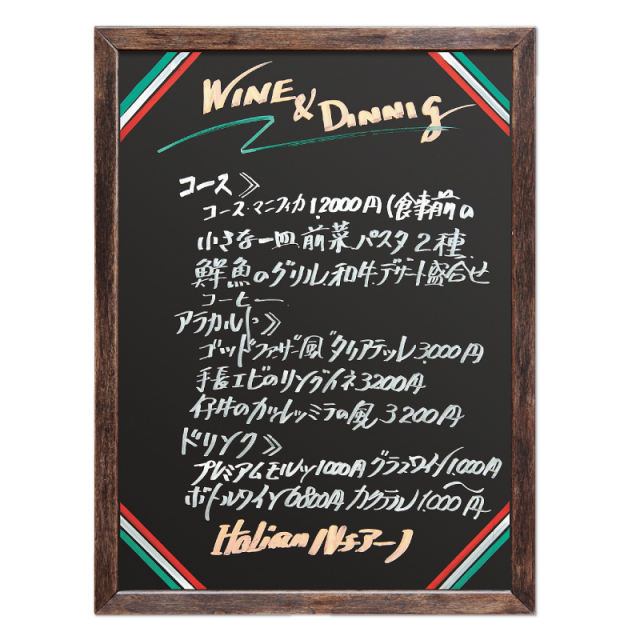 WINE & DINNIG
コース》
コース・マニフィカ 12000円(食事前の
小さな一皿.前菜パスタ2種
鮮魚のグリル.和牛.デザート盛合せ
コーヒー
アラカルト》
ゴッドファザー風タリアテッレ 3.000円
手長エビのリングイネ 3200円
仔牛のカツレツミラの風 3200円
ドリンク》
プレミアムモルツ 1000円 グラスワイン 1000円
ボトルワイン 6800円 カクテル 1.000〜円
Italian